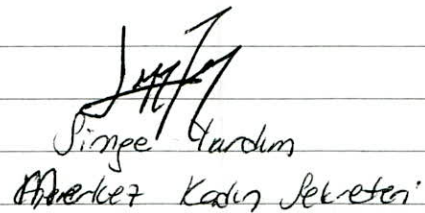 Simge Yardım
Merkez Kadın Sekreteri